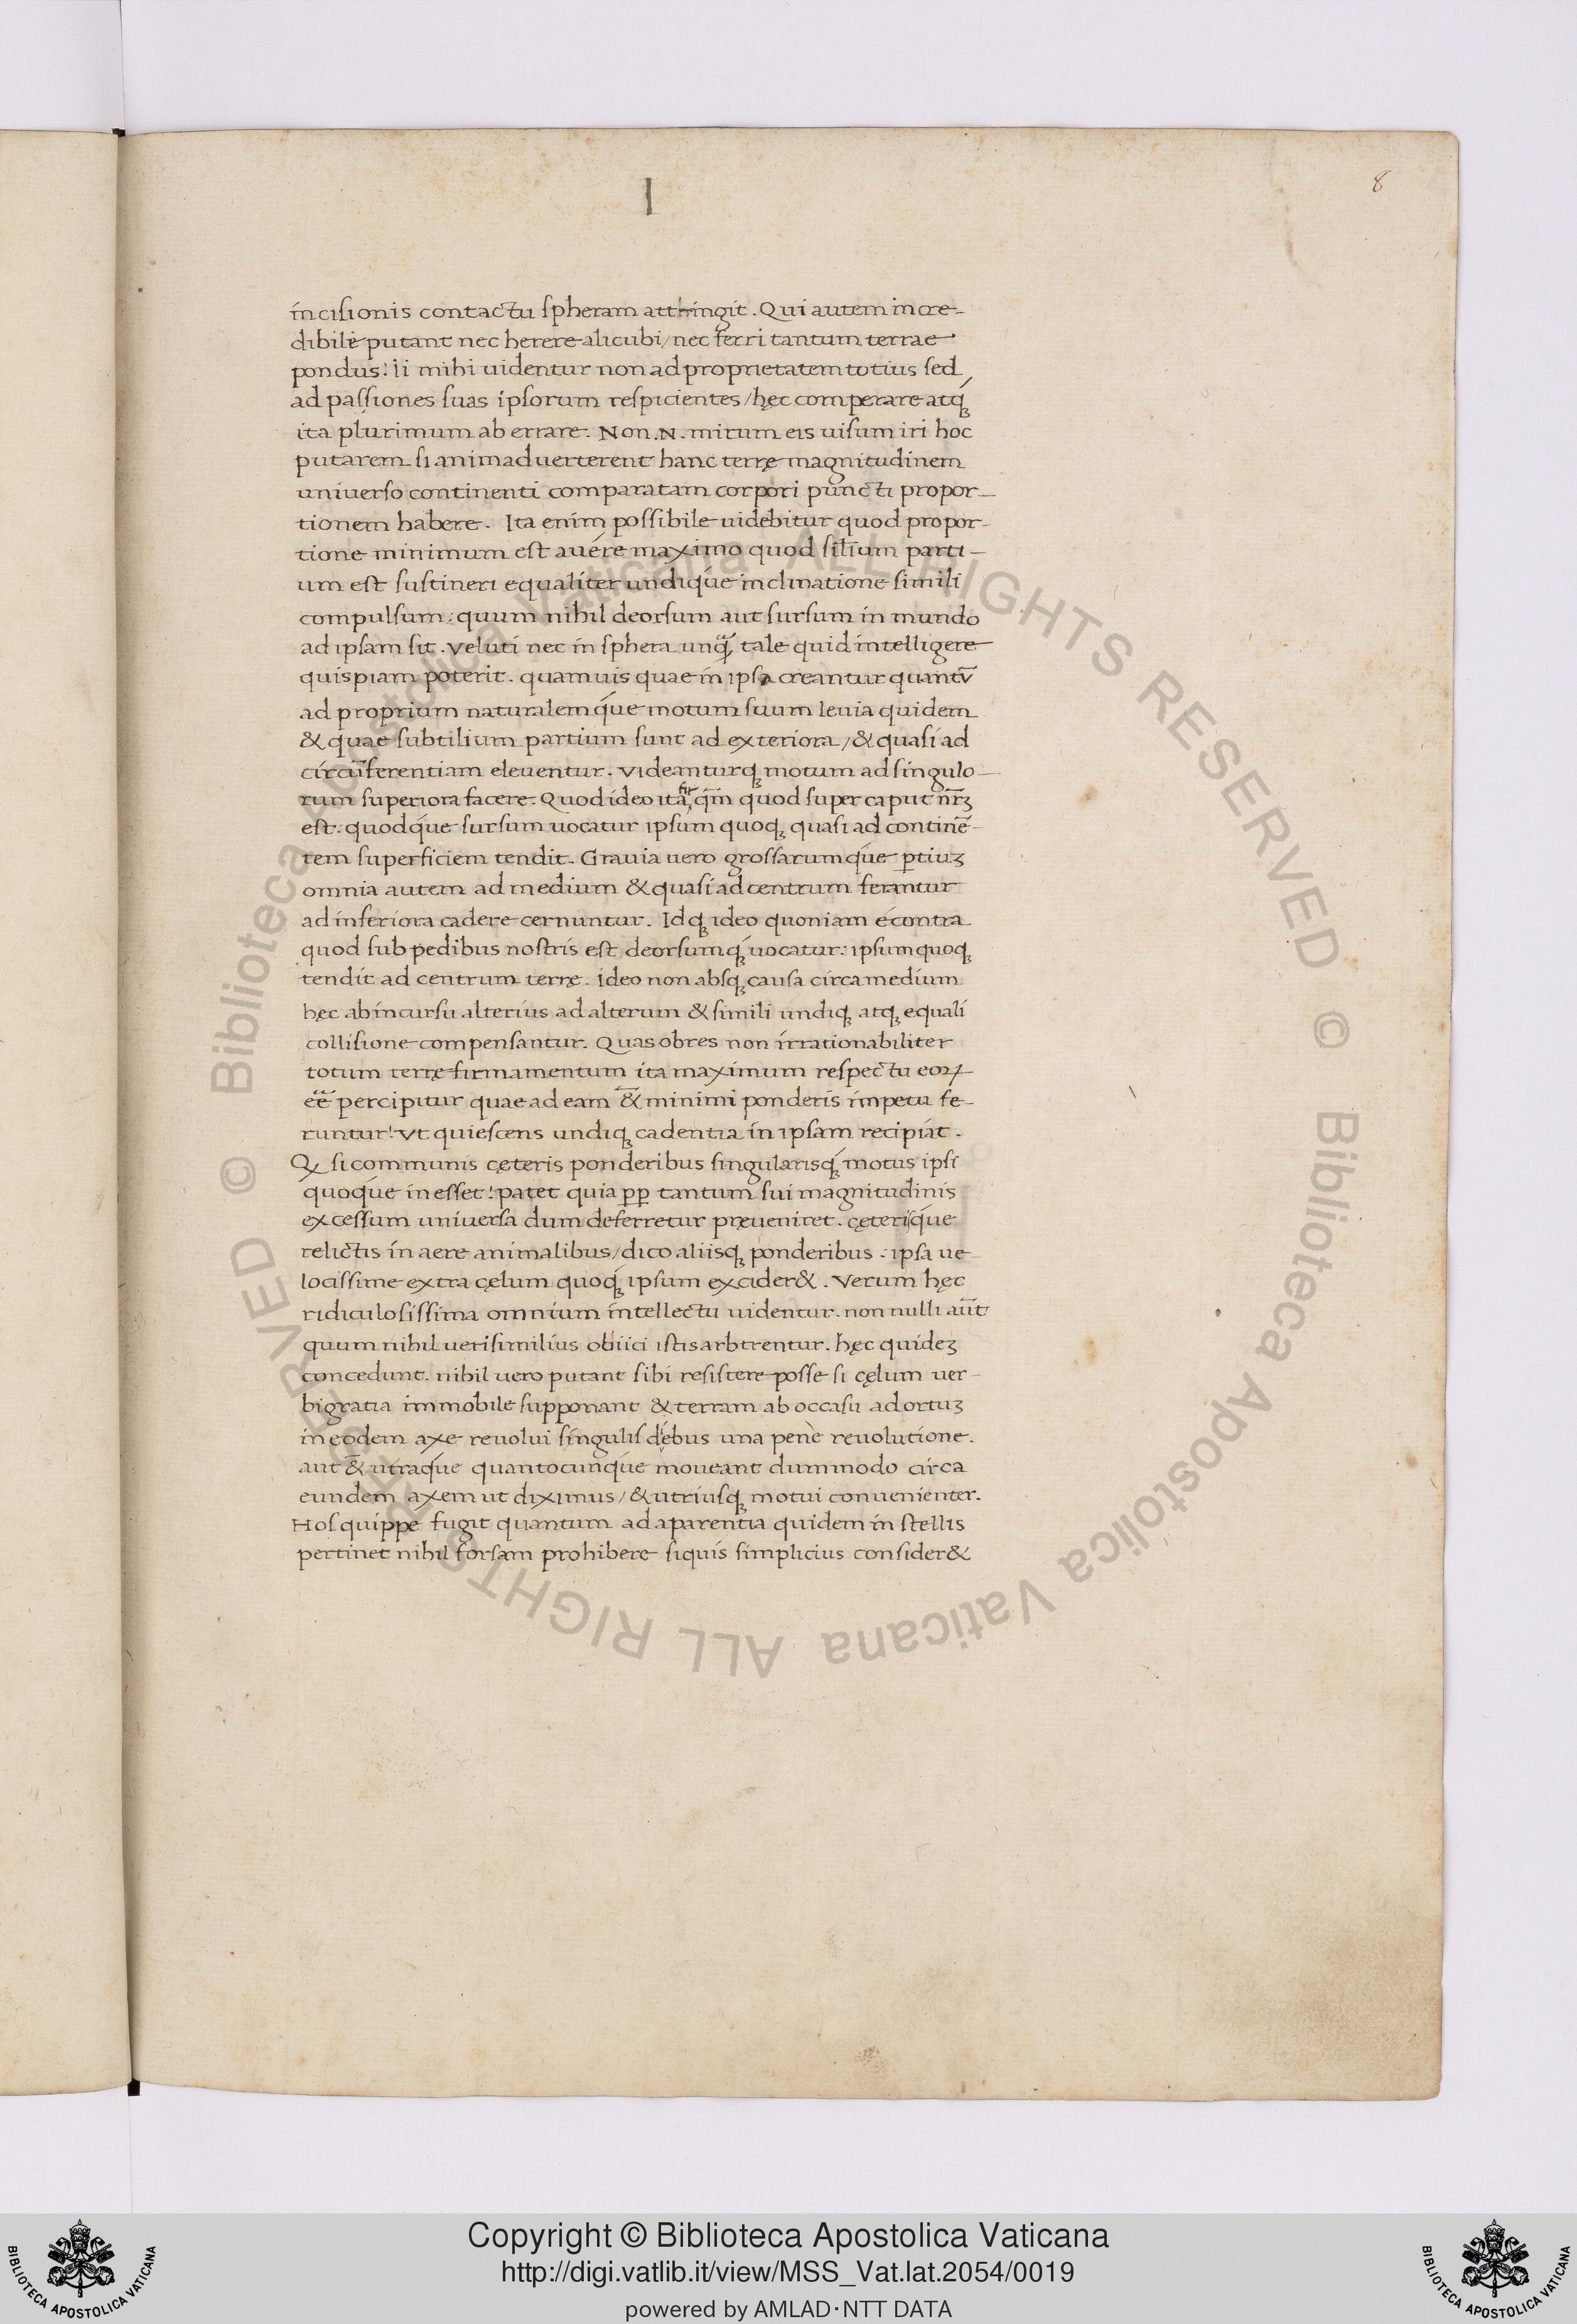 I
8
incisionis contactu spheram attingit. Qui autem incre-
dibile putant nec herere alicubi / nec ferri tantum terrae
pondus! ii mihi uidentur non ad proprietatem totius sed
ad passiones suas ipsorum respicientes / hęc comperare atq́ꝫ
ita plurimum ab errare. Non .N. mirum eis uisum iri hoc
putarem si animaduerterent hanc terrę magnitudinem
uniuerso continenti comparatam corpori puncti propor-
tionem habere. Ita enim possibile uidebitur quod propor-
tione minimum est auére maximo quod siliũm parti-
um est sustineri equaliter undiq́ue inclinatione simili
compulsum: quum nihil deorsum aut sursum in mundo
ad ipsam sit. Veluti nec in sphera unq̃ꝫ tale quid intelligere
quispiam poterit. quamuis quae in ipsa creantur quantũ
ad proprium naturalemq́ue motum suum leuia quidem
& quae subtilium partium sunt ad exteriora / & quasi ad
circũferentiam eleuentur. Videanturqꝫ motum ad singulo-
rum superiora facere. Quod ideo ita fit qm̃ quod super caput nr̃ꝫ
est: quodq́ue sursum uocatur ipsum quoqꝫ quasi ad continẽ-
tem superficiem tendit. Grauia uero grossarumq́ue ꝑtiuꝫ
omnia autem ad medium & quasi ad centrum ferantur
ad inferiora cadere cernuntur. Idqꝫ ideo quoniam é contra
quod sub pedibus nostris est deorsumq́ꝫ uocatur: ipsum quoqꝫ
tendit ad centrum terrę. Ideo non absqꝫ causa circa medium
hęc ab incursu alterius ad alterum & simili undiqꝫ atqꝫ equali
collisione compensantur. Quas ob res non irrationabiliter
totum terrę firmamentum ita maximum respectu eoꝝ
eẽ percipitur quae ad eam &̃ minimi ponderis impetu fe-
runtur! Vt quiescens undiqꝫ cadentia in ipsam recipiat.
Qꝫ si communis cęteris ponderibus singularisq́ꝫ motus ipsi
quoq́ue inesset! patet quia ꝑꝑ tantum sui magnitudinis
excessum uniuersa dum deferretur pręueniret. cęterisq́ue
relictis in aere animalibus / dico aliisqꝫ ponderibus: ipsa ue-
locissime extra cęlum quoq́ꝫ ipsum excider&. Verum hęc
ridiculosissima omnium intellectu uidentur. non nulli aũt
quum nihil uerisimilius obiici istis arbtrentur. hęc quideꝫ
concedunt. nihil uero putant sibi resistere posse si cęlum uer-
bigratia immobile supponant & terram ab occasu ad ortuꝫ
in eodem axe reuolui singulis diebus una penè reuolutione.
aut &̃ utraq́ue quantocunq́ue moueant dummodo circa
eundem axem ut diximus / & utriusqꝫ motui conuenienter.
Hos quippe fugit quantum ad aparentia quidem in stellis
pertinet nihil forsam prohibere siquis simplicius consider&
© Biblioteca Apostolica Vaticana ALL RIGHTS RESERVED © Biblioteca Apostolica Vaticana ALL RIGHTS RESERVED
BIBLIOTECA APOSTOLICA VATICANA
Copyright © Biblioteca Apostolica Vaticana
http://digi.vatlib.it/view/MSS_Vat.lat.2054/0019
powered by AMLAD·NTT DATA
BIBLIOTECA APOSTOLICA VATICANA